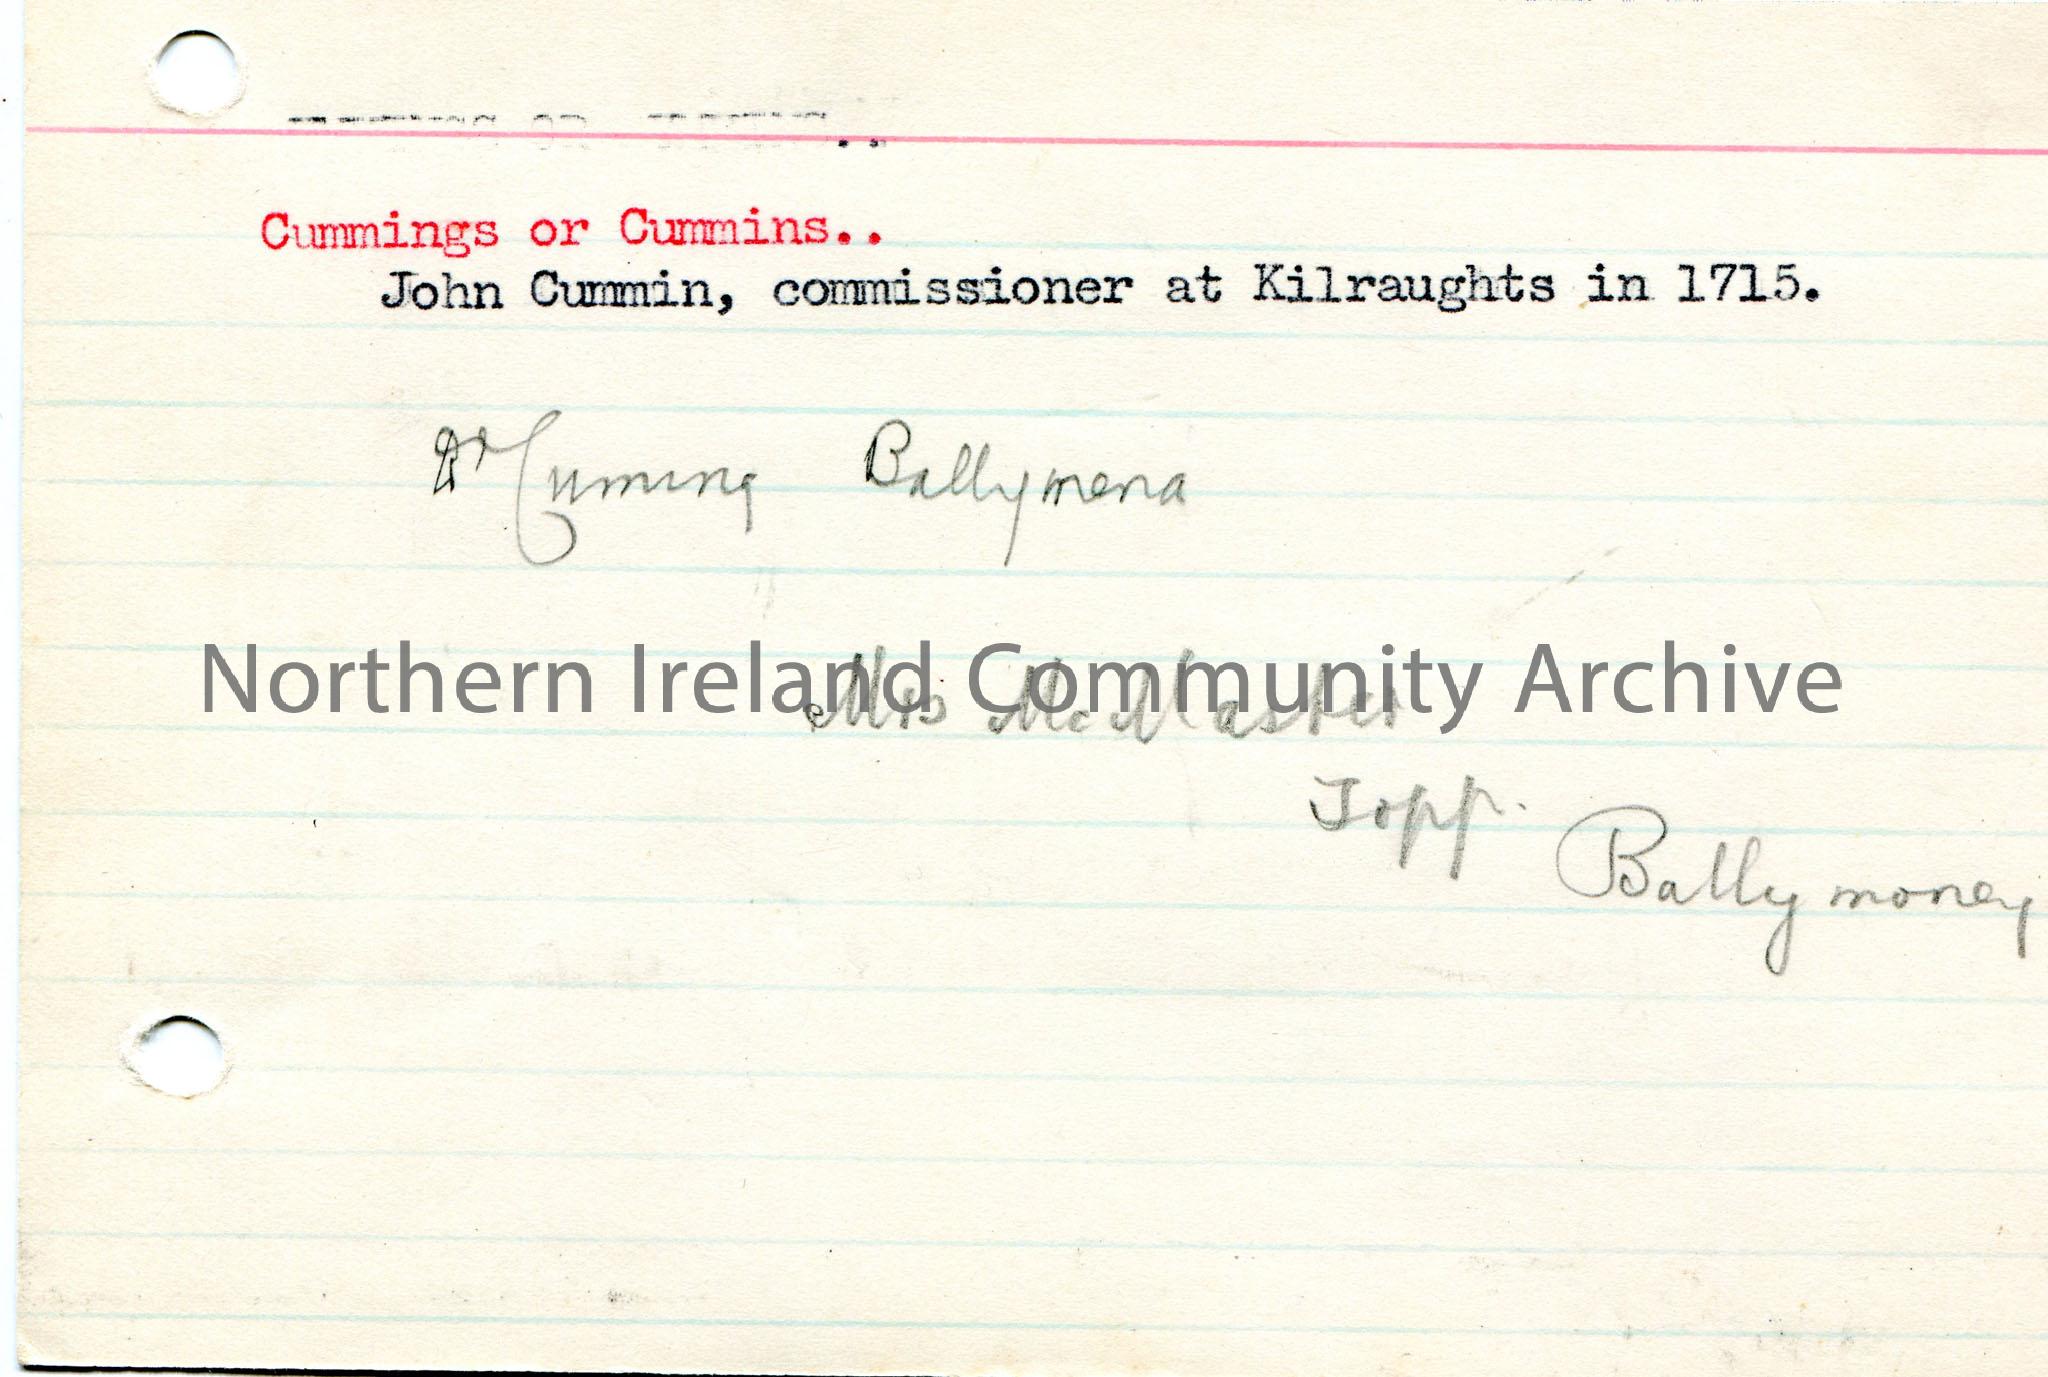 Cummings or Cummins..
John Cummin, commissioner at Kilraughts in 1715.
Dr Cuming Ballymena
Northern Ireland Community Archive
Mrs McMaster
Topp.
Ballymoney